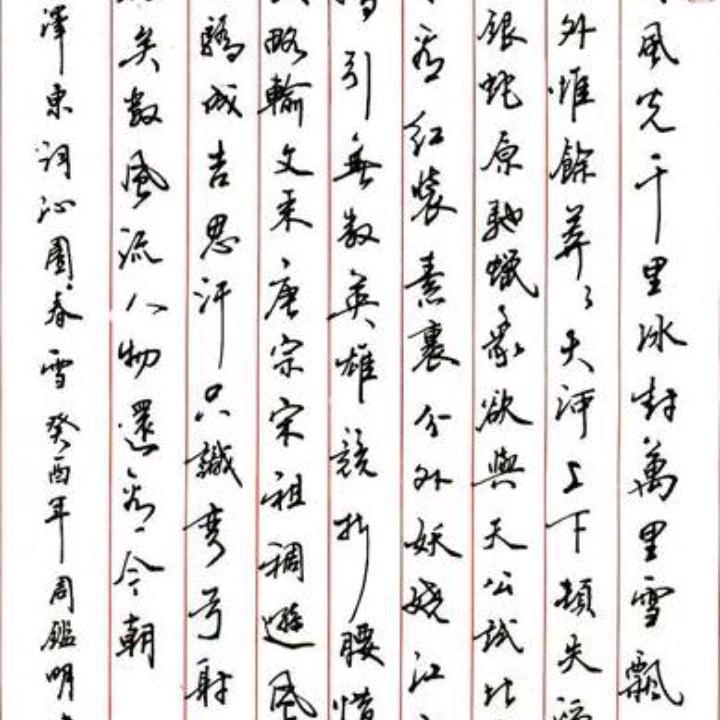 風光千里冰封萬里雪飄
外惟餘莽〻大河上下頓失滔
銀蛇原馳蠟象欲與天公試比
看紅裝素裹分外妖嬈江
引無數英雄競折腰惜
略輸文采唐宗宋祖稠遜風
驕成吉思汗只識彎弓射
矣數風流人物還看今朝
澤東詞沁園春雪癸酉年周鑑明